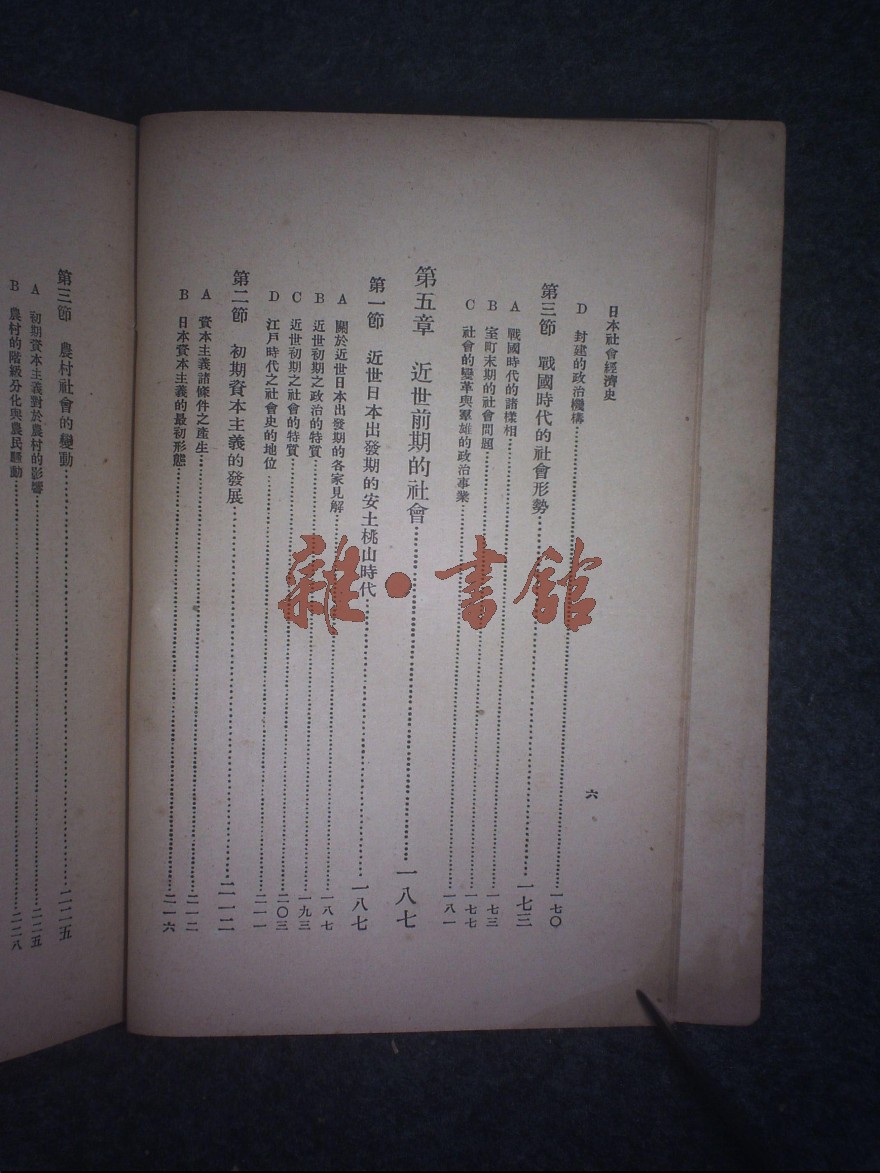 日本社會經濟史
六
D 封建的政治機構 一七〇
第三節 戰國時代的社會形勢 一七三
A 戰國時代的諸樣相 一七三
B 室町末期的社會問題 一七七
C 社會的變革與羣雄的政治事業 一八一
第五章 近世前期的社會 一八七
第一節 近世日本出發期的安土桃山時代 一八七
A 關於近世日本出發期的各家見解 一八七
B 近世初期之政治的特質 一九三
C 近世初期之社會的特質 二〇三
D 江戶時代之社會史的地位 二一一
第二節 初期資本主義的發展 二一二
A 資本主義諸條件之產生 二一二
B 日本資本主義的最初形態 二一六
第三節 農村社會的變動 二二五
A 初期資本主義對於農村的影響 二二五
B 農村的階級分化與農民騷動 二二八
雜·書館